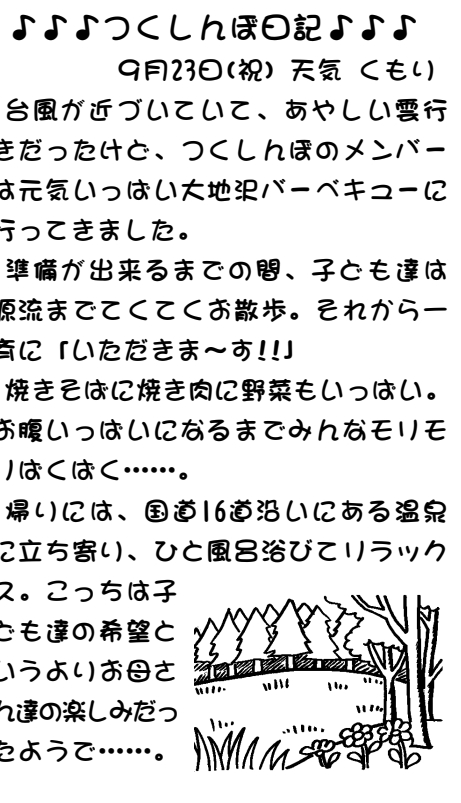 ♪♪♪つくしんぼ日記♪♪♪
9月23日(祝) 天気 くもり
台風が近づいていて、あやしい雲行
きだったけど、つくしんぼのメンバー
は元気いっぱい大地沢バーベキューに
行ってきました。
準備が出来るまでの間、子ども達は
源流までてくてくお散歩。それから一
斉に「いただきま〜す!!」
焼きそばに焼き肉に野菜もいっぱい。
お腹いっぱいになるまでみんなモリモ
リぱくぱく……。
帰りには、国道16道沿いにある温泉
に立ち寄り、ひと風呂浴びてリラック
ス。こっちは子
ども達の希望と
いうよりお母さ
ん達の楽しみだっ
たようで……。